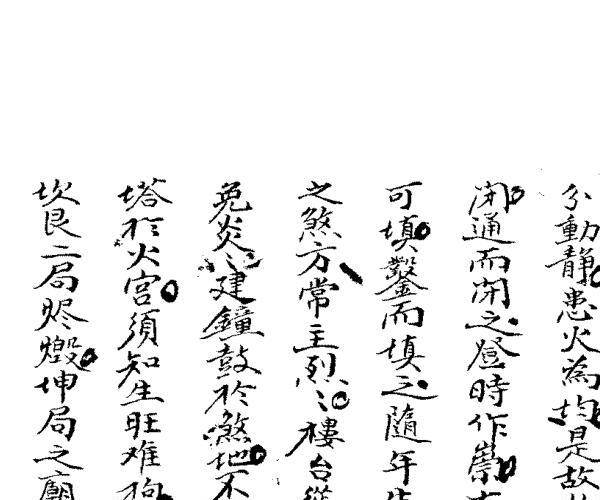 分動靜患火為均是故
閉通而閉之登時作祟
可填鑿而填之隨年
之煞方常主烈烈樓台
免炎炎建鐘鼓於煞地不
塔於火宮須知生旺难拘
坎艮二局烬燬坤局之廟